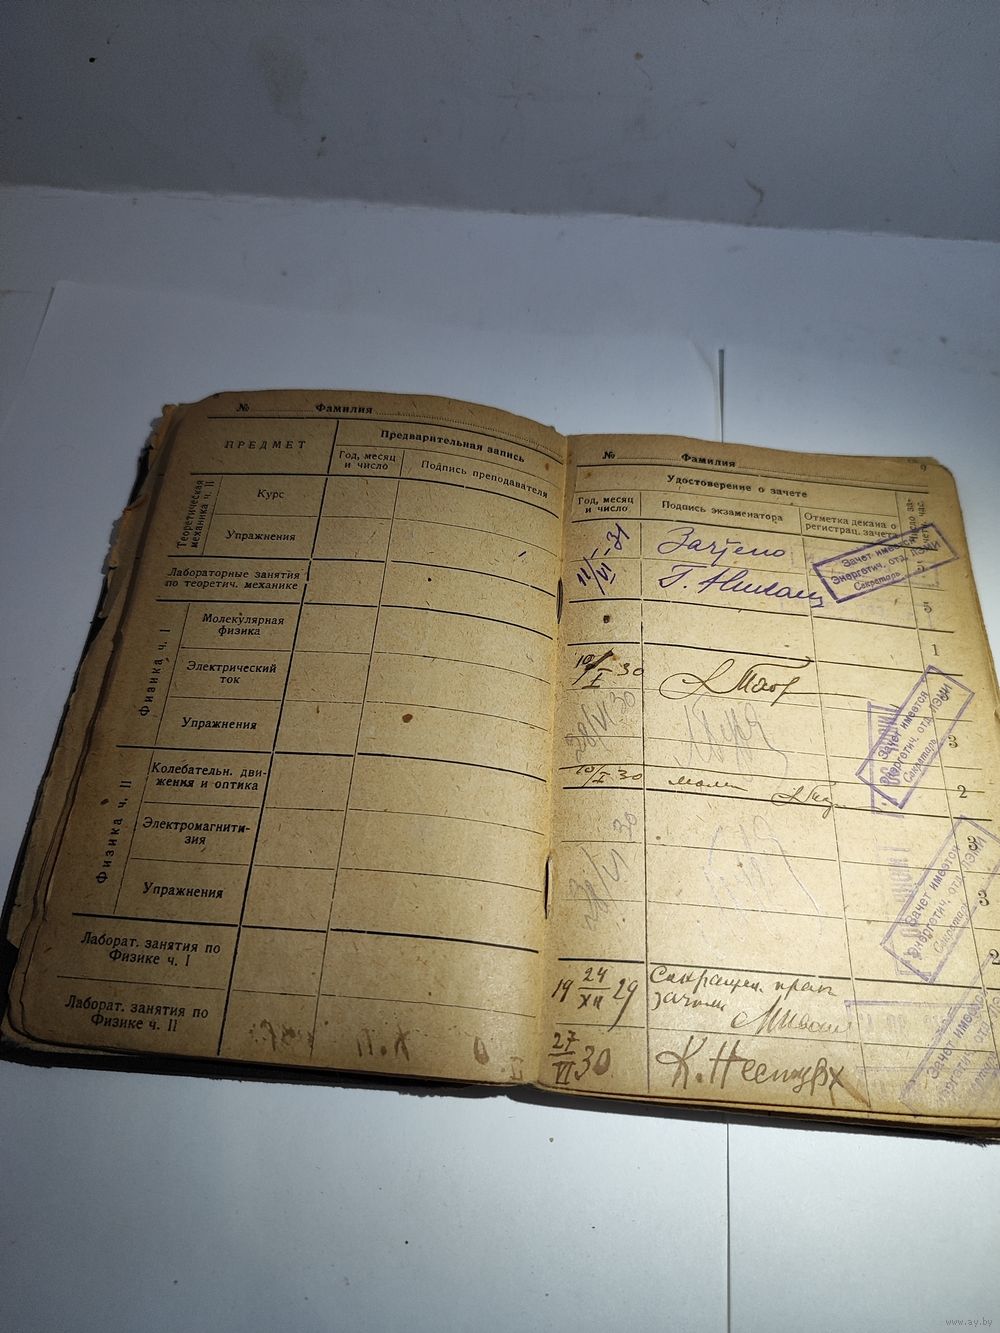 № Фамилия
ПРЕДМЕТ
Предварительная запись
Год, месяц
и число
Подпись преподавателя
Теоретическая
механика ч. II
Курс
Упражнения
Лабораторные занятия
по теоретич. механике
Физика ч. I
Молекулярная
физика
Электрический
ток
Упражнения
Физика ч. II
Колебательн. дви-
жения и оптика
Электромагнити-
зия
Упражнения
Лаборат. занятия по
Физике ч. I
Лаборат. занятия по
Физике ч. II
№ Фамилия
9
Удостоверение о зачете
Год, месяц
и число
Подпись экзаменатора
Отметка декана о
регистрац. зачета
11/VI 31
Зачтено
Зачет имеется
Энергетич. отд. ЛЭМИ
Секретарь
5
1
10/I 30
3
Зачет имеется
Энергетич. отд. ЛЭМИ
Секретарь
28/VI 30
2
10/I 30
3
28/VI 30
3
Зачет имеется
Энергетич. отд. ЛЭМИ
Секретарь
2
19 24/XII 29
27/VI 30
Зачет имеется
www.ay.by